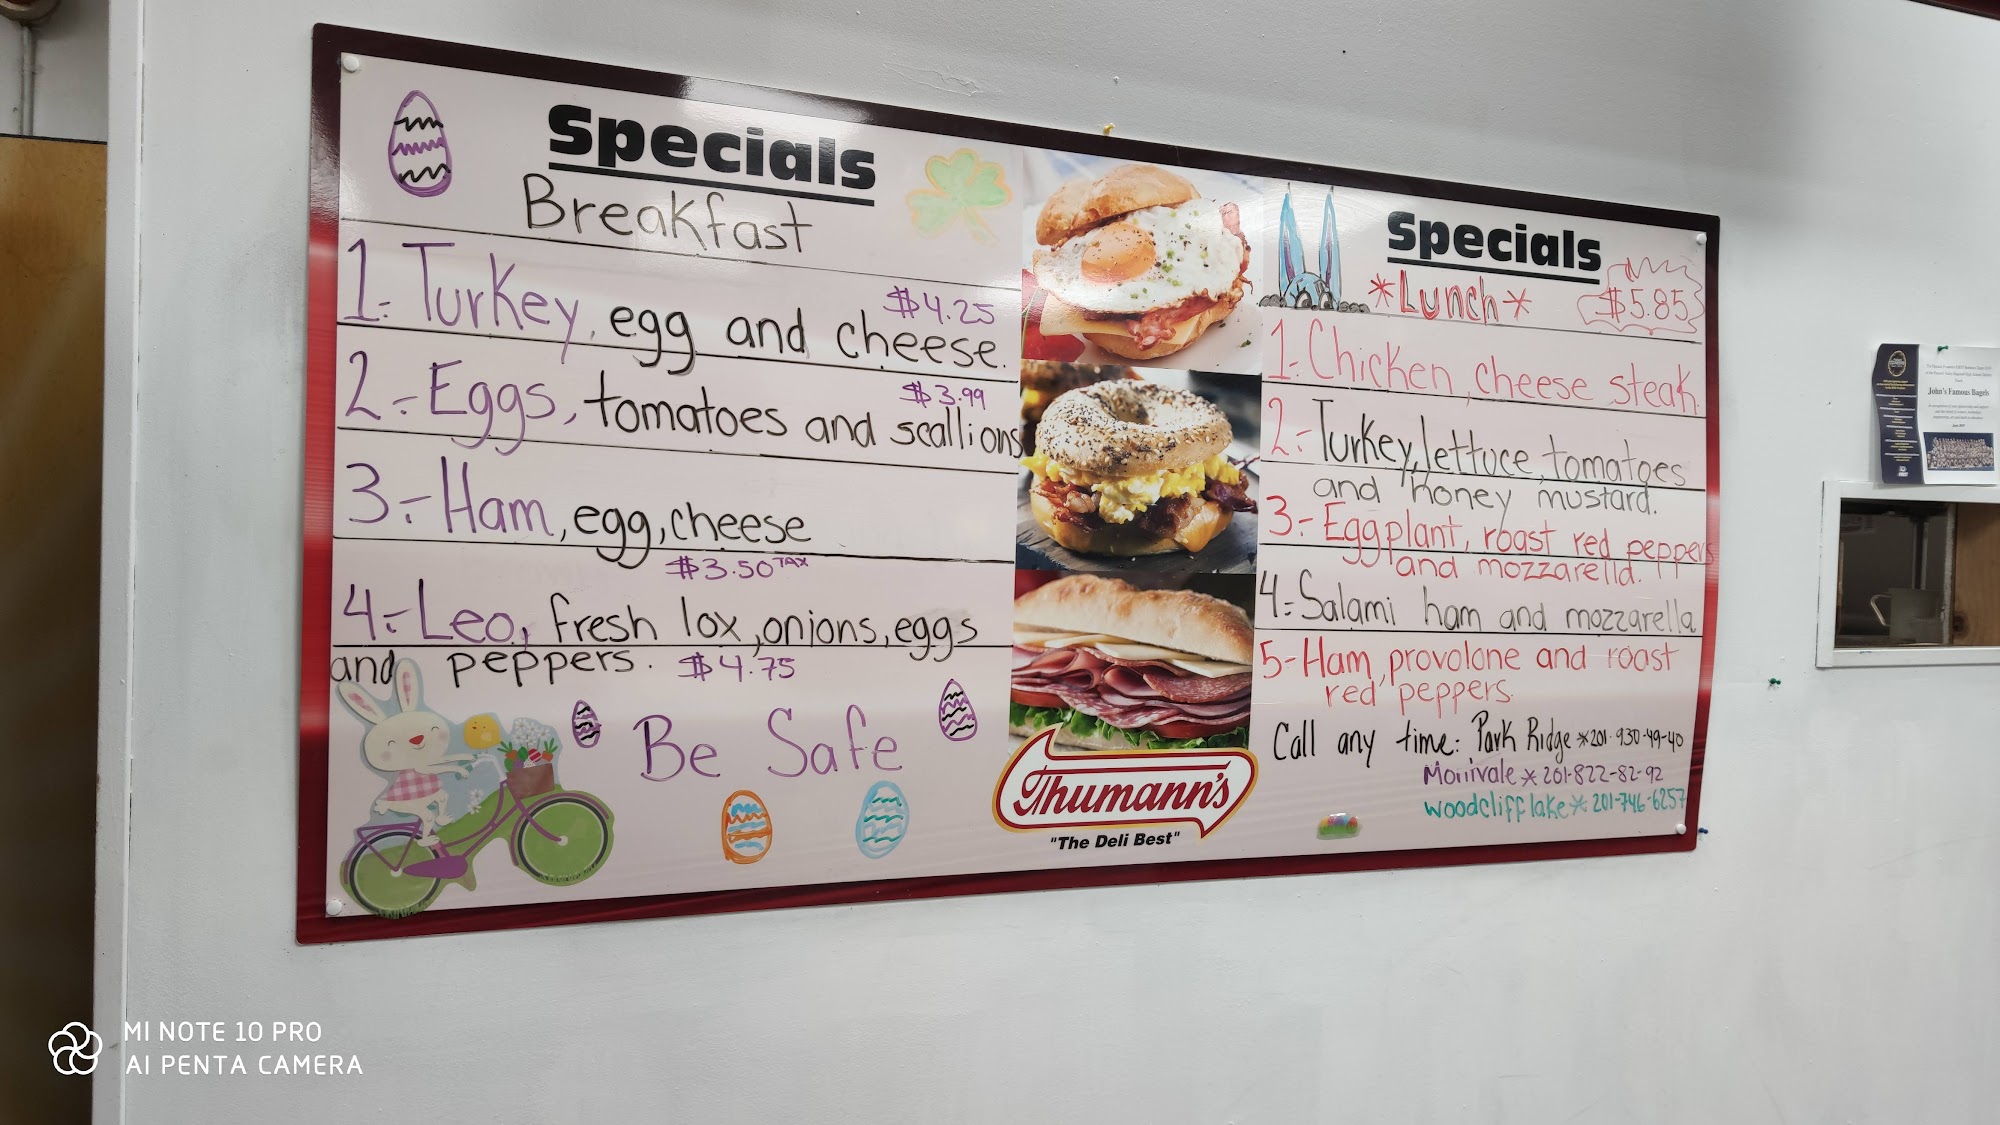 Specials
Breakfast
1.- Turkey, egg and cheese.
$4.25
2.- Eggs, tomatoes and scallions
$3.99
3.- Ham, egg, cheese
$3.50 TAX
4.- Leo, fresh lox, onions, eggs
and peppers. $4.75
Be Safe
Thumann's
"The Deli Best"
Specials
*Lunch*
$5.85
1.- Chicken, cheese steak
2.- Turkey, lettuce, tomatoes
and honey mustard.
3.- Eggplant, roast red peppers
and mozzarella.
4.- Salami ham and mozzarella
5- Ham, provolone and roast
red peppers.
Call any time: Park Ridge * 201-930-49-40
Montvale * 201-822-82-92
Woodcliff lake * 201-746-6257
John's Famous Bagels
MI NOTE 10 PRO
AI PENTA CAMERA